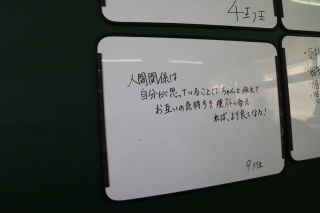 4班
人間関係は
自分が思っていることはちゃんと伝えて
お互いの気持ちを理解し合え
れば、より良くなる!
9班